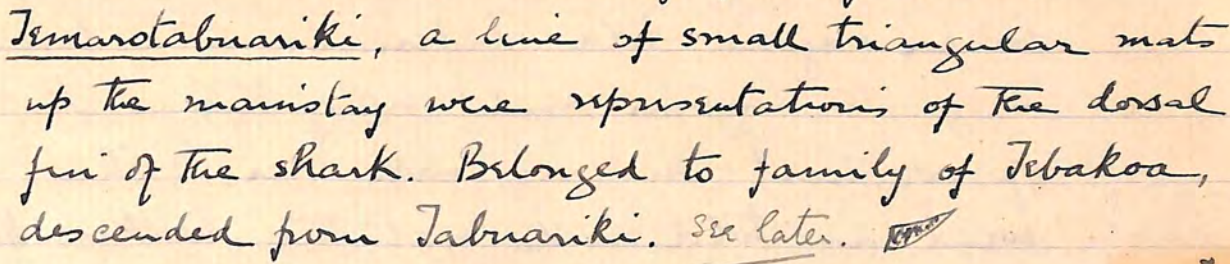 Temarotabuariki, a line of small triangular mats
up the mainstay were representations of the dorsal
fin of the shark. Belonged to family of Tebakoa,
descended from Tabuariki. See later.